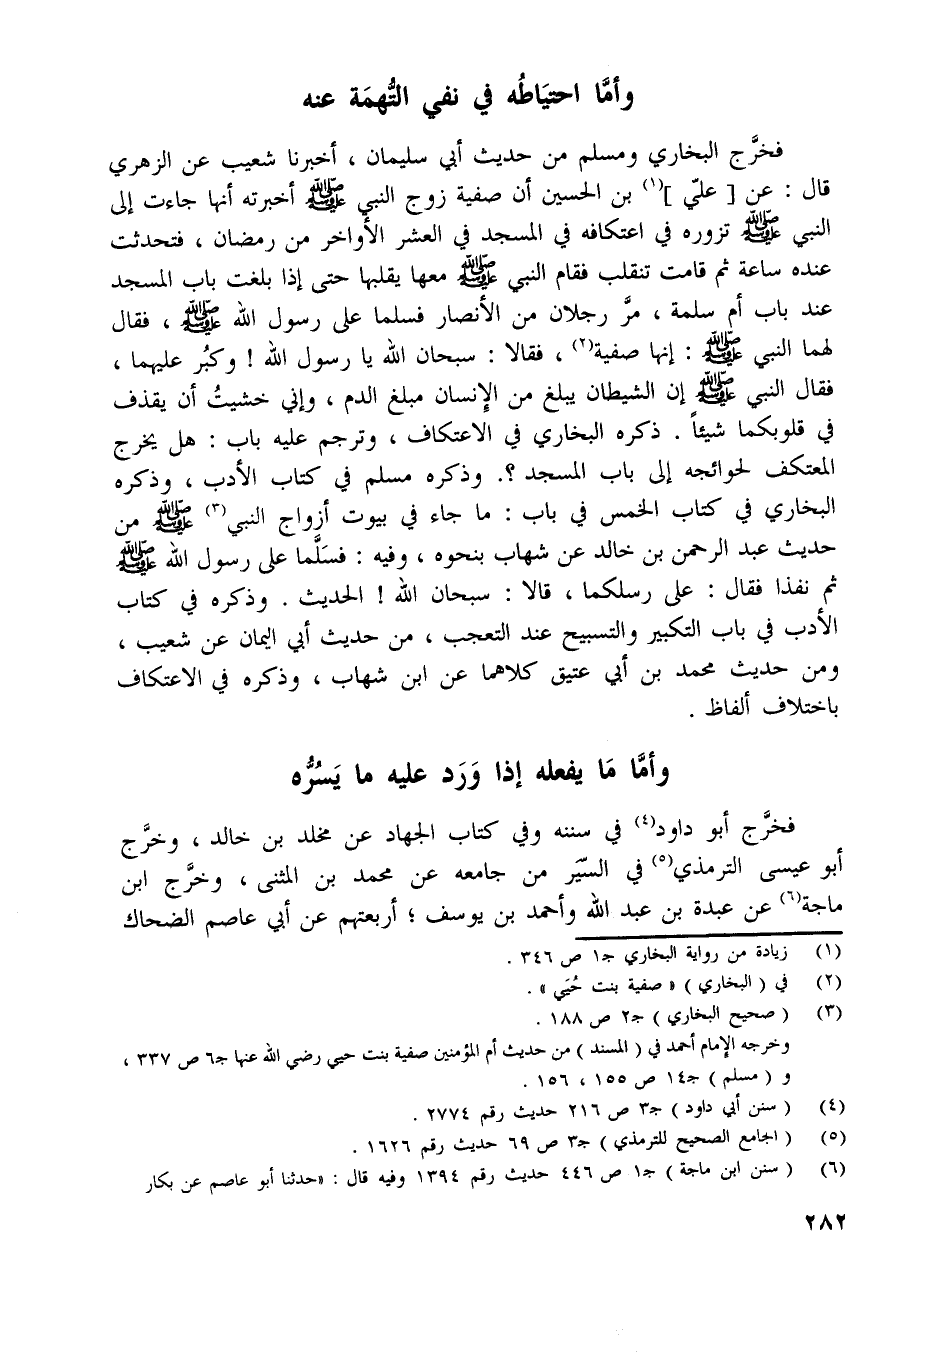 وأمَّا احتيَاطُه في نفي التُّهمَة عنه
فخرَّج البخاري ومسلم من حديث أبي سليمان ، أخبرنا شعيب عن الزهري
قال : عن [ عليّ ](١) بن الحسين أن صفية زوج النبي ﷺ أخبرته أنها جاءت إلى
النبي ﷺ تزوره في اعتكافه في المسجد في العشر الأواخر من رمضان ، فتحدثت
عنده ساعة ثم قامت تنقلب فقام النبي ﷺ معها يقلبها حتى إذا بلغت باب المسجد
عند باب أم سلمة ، مرَّ رجلان من الأنصار فسلما على رسول الله ﷺ ، فقال
لهما النبي ﷺ : إنها صفية(٢) ، فقالا : سبحان الله يا رسول الله ! وكبُر عليهما ،
فقال النبي ﷺ إن الشيطان يبلغ من الإِنسان مبلغ الدم ، وإني خشيتُ أن يقذف
في قلوبكما شيئاً . ذكره البخاري في الاعتكاف ، وترجم عليه باب : هل يخرج
المعتكف لحوائجه إلى باب المسجد ؟. وذكره مسلم في كتاب الأدب ، وذكره
البخاري في كتاب الخمس في باب : ما جاء في بيوت أزواج النبي(٣) ﷺ من
حديث عبد الرحمن بن خالد عن شهاب بنحوه ، وفيه : فسَلَّما على رسول الله ﷺ
ثم نفذا فقال : على رسلكما ، قالا : سبحان الله ! الحديث . وذكره في كتاب
الأدب في باب التكبير والتسبيح عند التعجب ، من حديث أبي اليمان عن شعيب ،
ومن حديث محمد بن أبي عتيق كلاهما عن ابن شهاب ، وذكره في الاعتكاف
باختلاف ألفاظ .
وأمَّا مَا يفعله إذا وَرَد عليه ما يَسُرُّه
فخرَّج أبو داود(٤) في سننه وفي كتاب الجهاد عن مخلد بن خالد ، وخرَّج
أبو عيسى الترمذي(٥) في السيَر من جامعه عن محمد بن المثنى ، وخرَّج ابن
ماجة(٦) عن عبدة بن عبد الله وأحمد بن يوسف ؛ أربعتهم عن أبي عاصم الضحاك
(١) زيادة من رواية البخاري جـ١ ص ٣٤٦ .
(٢) في ( البخاري ) « صفية بنت حُيَي » .
(٣) ( صحيح البخاري ) جـ٢ ص ١٨٨ .
وخرجه الإمام أحمد في ( المسند ) من حديث أم المؤمنين صفية بنت حيي رضي الله عنها جـ٦ ص ٣٣٧ ،
و ( مسلم ) جـ١٤ ص ١٥٥ ، ١٥٦ .
(٤) ( سنن أبي داود ) جـ٣ ص ٢١٦ حديث رقم ٢٧٧٤ .
(٥) ( الجامع الصحيح للترمذي ) جـ٣ ص ٦٩ حديث رقم ١٦٢٦ .
(٦) ( سنن ابن ماجة ) جـ١ ص ٤٤٦ حديث رقم ١٣٩٤ وفيه قال : «حدثنا أبو عاصم عن بكار
٢٨٢